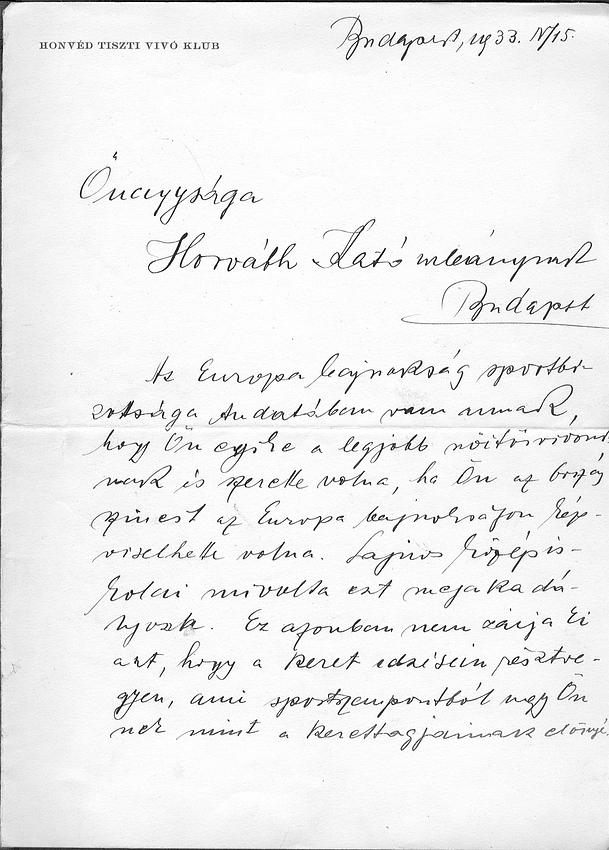 HONVÉD TISZTI VIVÓ KLUB
Budapest, 1933. IV/15.
Őnagysága
Horváth Kató urleánynak
Budapest
Az Europa bajnokság sportbi-
zottsága tudatában van annak,
hogy Ön egyike a legjobb női tőrvivónk
nak és szerette volna, ha Ön az ország
szineit az Europa bajnokságon kép-
viselhette volna. Sajnos középis-
kolai mivolta ezt megakadá-
lyozza. Ez azonban nem zárja ki
azt, hogy a keret edzésein résztve-
gyen, ami sportszempontból ugy Ön
nek mint a keret tagjainak előnyé